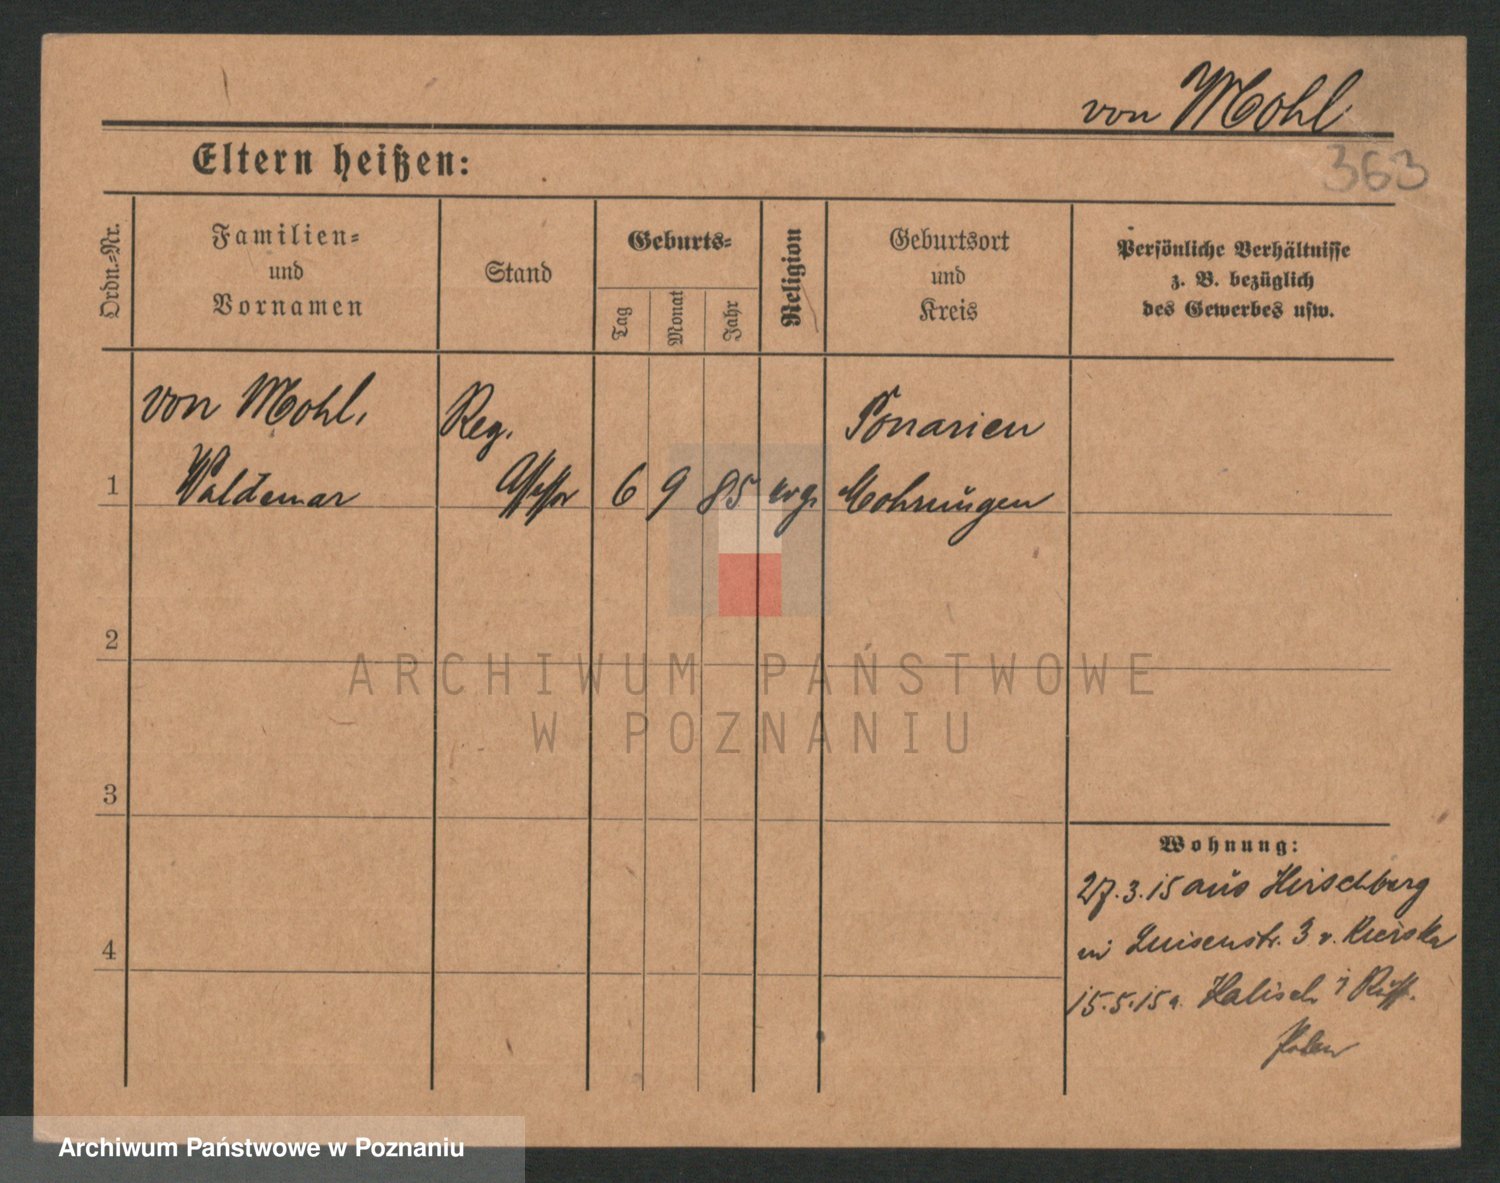 von Mohl
363
Eltern heißen:
Ordn.-Nr.
Familien-
und
Vornamen
Stand
Geburts-
Tag
Monat
Jahr
Religion
Geburtsort
und
Kreis
Persönliche Verhältnisse
z. B. bezüglich
des Gewerbes usw.
von Mohl,
Waldemar
Reg.
Assessor
1
6
9
85
evg.
Ponarien
Mohrungen
2
3
4
Wohnung:
27.3.15 aus Hirschberg
Luisenstr. 3 v.
15.5.15 Kalisch Russ.
Polen
ARCHIWUM PAŃSTWOWE
W POZNANIU
Archiwum Państwowe w Poznaniu